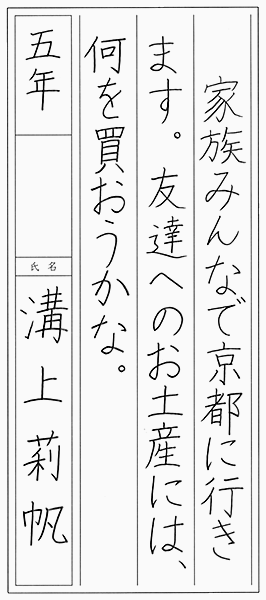 家族みんなで京都に行き
ます。友達へのお土産には、
何を買おうかな。
五年
氏名
溝上莉帆